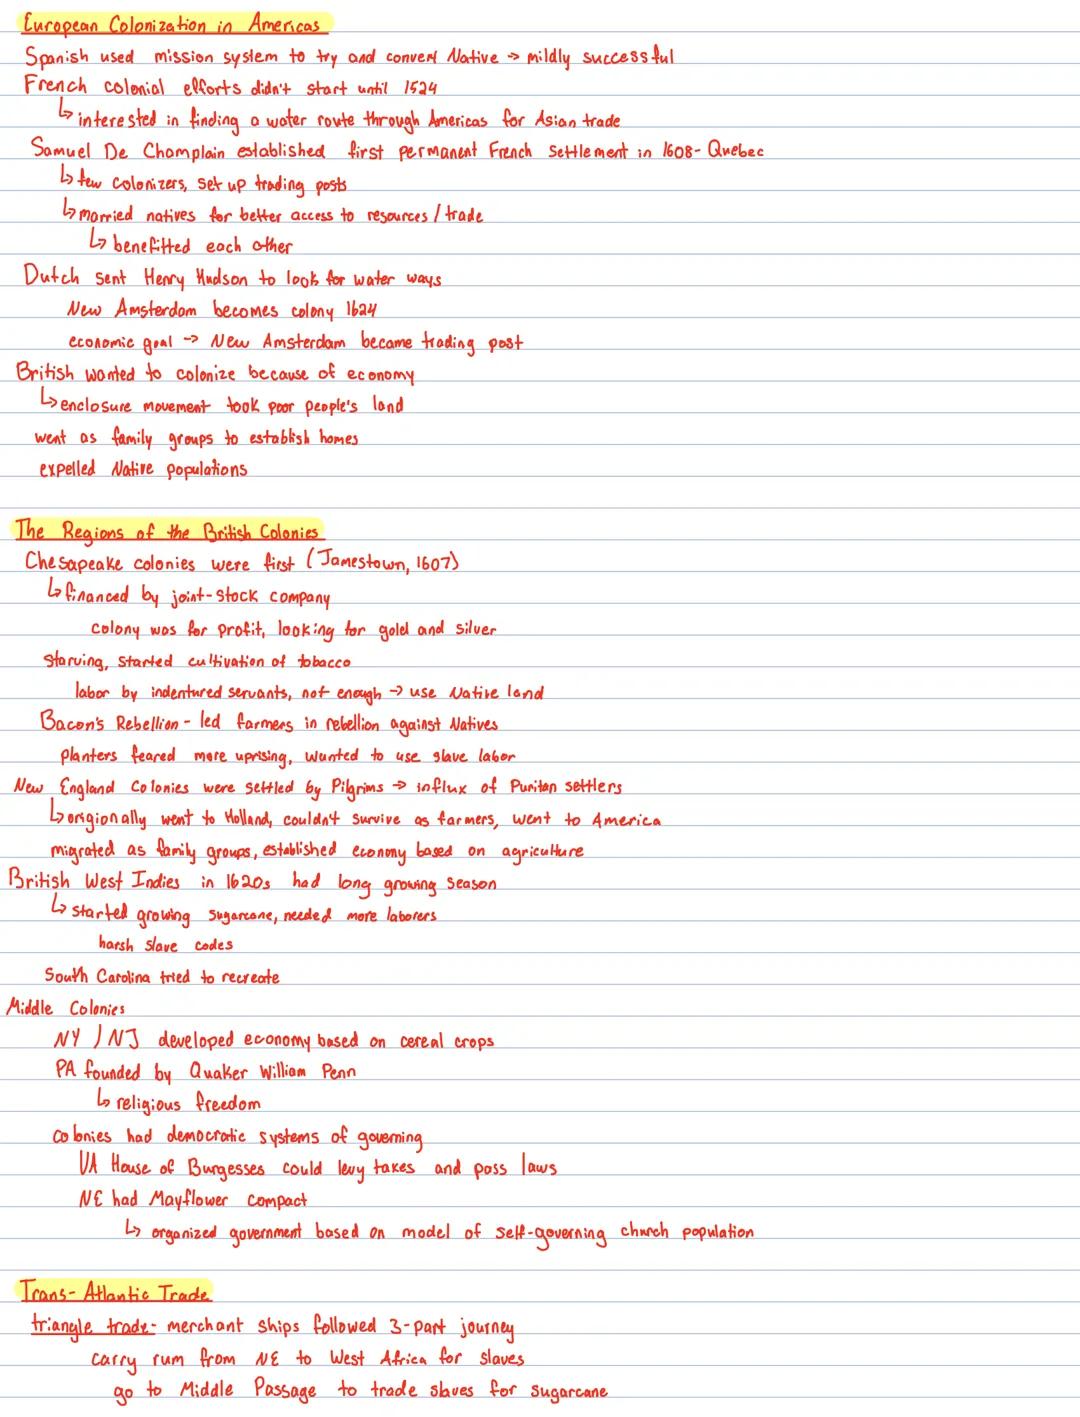 European Colonization in Americas
Spanish used mission system to try and convert Native → mildly successful
French colonial efforts didn't start until 1524
↳ interested in finding a water route through Americas for Asian trade
Samuel De Champlain established first permanent French Settlement in 1608- Quebec
↳ few colonizers, set up trading posts
↳ married natives for better access to resources / trade
↳ benefitted each other
Dutch sent Henry Hudson to look for water ways
New Amsterdam becomes colony 1624
economic goal → New Amsterdam became trading post
British wanted to colonize because of economy
↳ enclosure movement took poor people's land
went as family groups to establish homes
expelled Native populations
The Regions of the British Colonies
Chesapeake colonies were first (Jamestown, 1607)
↳ financed by joint-stock company
colony was for profit, looking for gold and silver
starving, started cultivation of tobacco
labor by indentured servants, not enough → use Native land
Bacon's Rebellion - led farmers in rebellion against Natives
planters feared more uprising, wanted to use slave labor
New England Colonies were settled by Pilgrims → influx of Puritan settlers
↳ origionally went to Holland, couldn't survive as farmers, went to America
migrated as family groups, established economy based on agriculture
British West Indies in 1620s had long growing season
↳ started growing sugarcane, needed more laborers
harsh slave codes
South Carolina tried to recreate
Middle Colonies
NY / NJ developed economy based on cereal crops
PA founded by Quaker William Penn
↳ religious freedom
colonies had democratic systems of governing
VA House of Burgesses could levy takes and pass laws
NE had Mayflower Compact
↳ organized government based on model of self-governing church population
Trans-Atlantic Trade
triangle trade- merchant ships followed 3-part journey
carry rum from NE to West Africa for slaves
go to Middle Passage to trade slaves for sugarcane